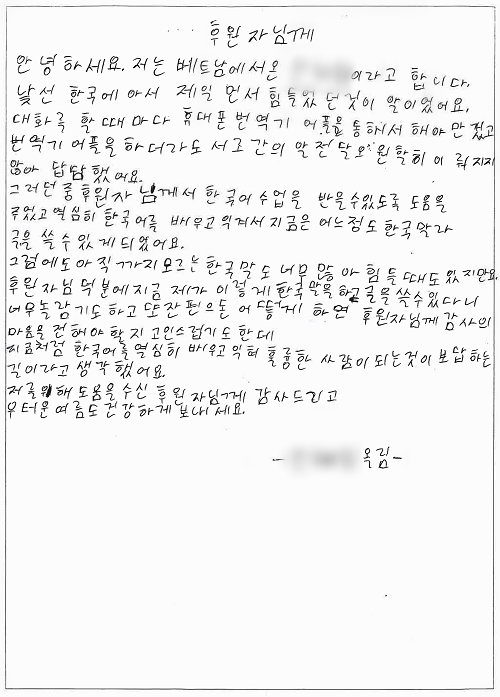 후원자님께
안녕하세요. 저는 베트남에서온 이라고 합니다.
낯선 한국에 아서 제일 먼저 힘들었던것이 말이었어요.
대화를 할 때마다 휴대폰번역기 어플을 통해서 해야만 했고
번역기 어플을 하더라도 서로간의 말전달도 원할히 이뤄지지
않아 답답했어요.
그러던중후원자님께서 한국어수업을 받을수있도록 도움을
주었고열심히 한국어를 배우고익혀서지금은어느정도한국말과
글을 쓸 수 있게 되었어요.
그럼에도아직까지모르는한국말도 너무많아 힘들때도있지만요.
후원자님덕분에지금 제가 이렇게한국말을하고글을쓸수있다니
너무놀랍기도하고 또한편으론 어떻게 하면 후원자님께감사의
마음을전해야할지고민스럽기도한데
지금처럼 한국어를열심히 배우고익혀 훌륭한 사람이되는것이보답하는
길이라고 생각했어요.
저를위해도움을주신 후원자님께 감사드리고
무더운여름도건강하게보내세요.
- 올림-